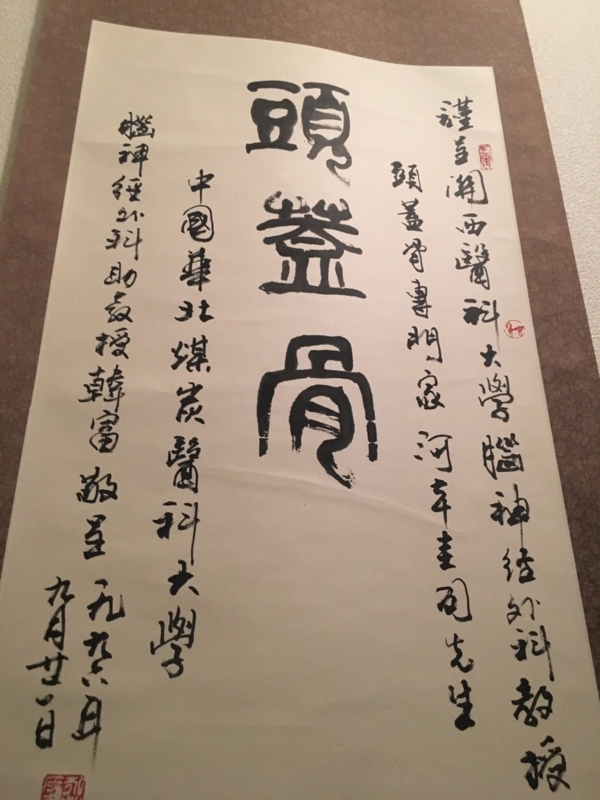 謹呈関西醫科大學腦神经外科教授
頭蓋骨專門家河本圭司先生
頭蓋骨
中國華北煤炭醫科大學
腦神経外科助教授韓富敬呈一九九六年
九月廿一日